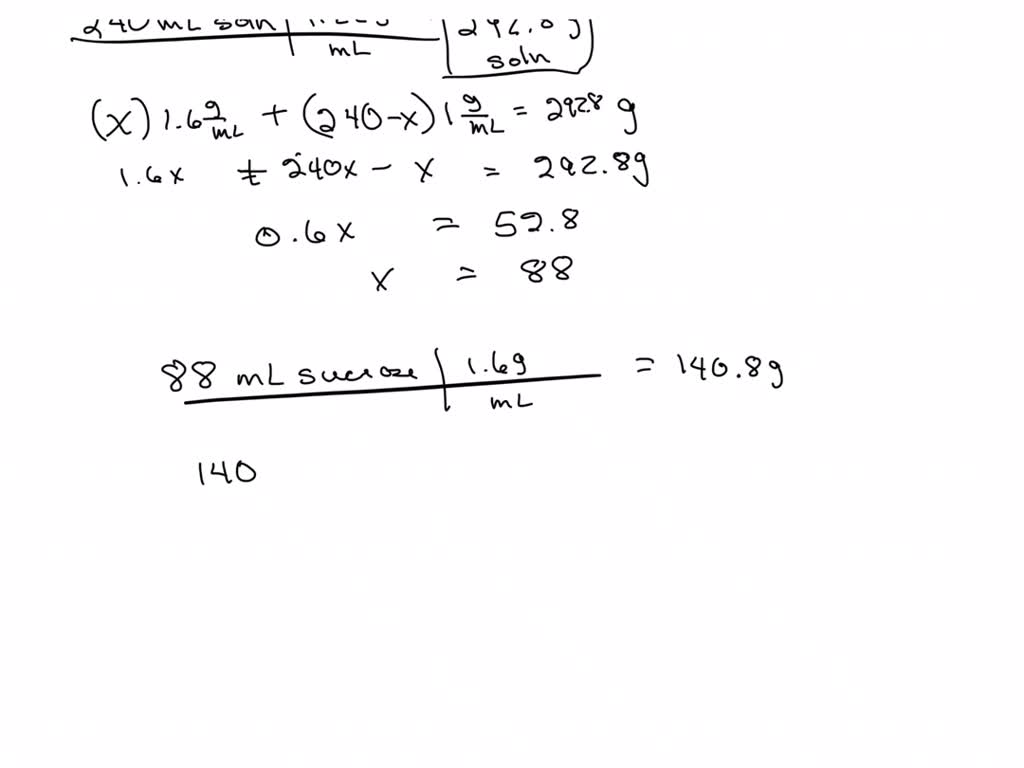 240 mL soln
mL
soln
(x) 1.6 g/mL + (240-x) 1 g/mL = 292.8 g
1.6x + 240x - x = 292.8g
0.6x = 52.8
x = 88
88 mL sucrose | 1.6g = 140.8g
mL
140